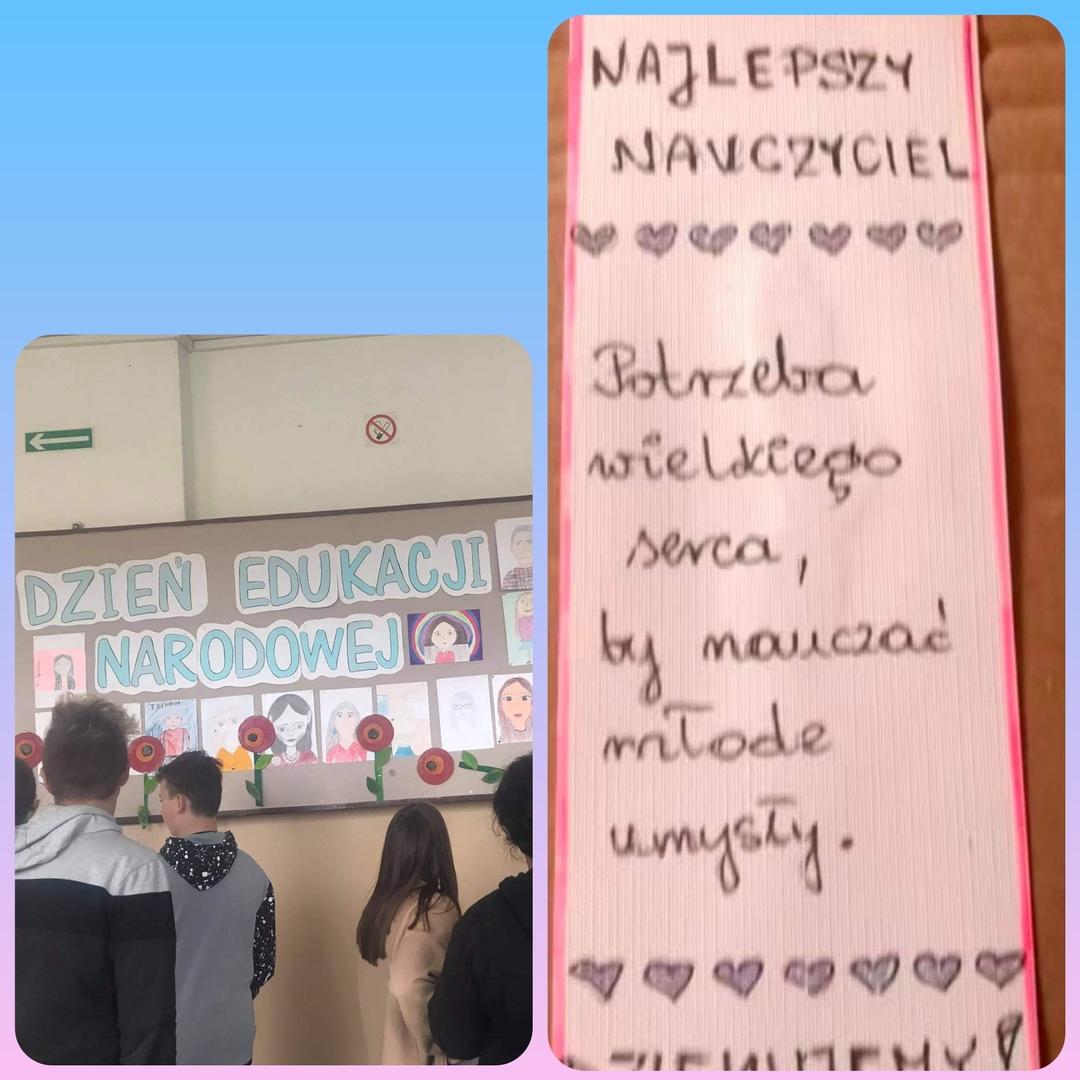 DZIEŃ EDUKACJI
NARODOWEJ
NAJLEPSZY
NAUCZYCIEL
Potrzeba
wielkiego
serca,
by nauczać
młode
umysły.